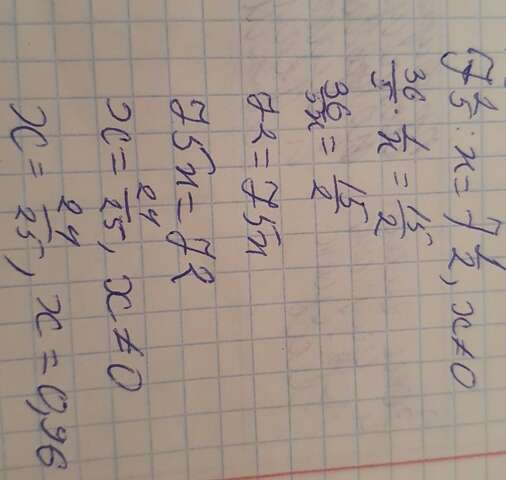 7 1/5 : x = 7 1/2, x ≠ 0
36/5 · 1/x = 15/2
36/5x = 15/2
72 = 75x
75x = 72
x = 24/25, x ≠ 0
x = 24/25, x = 0,96